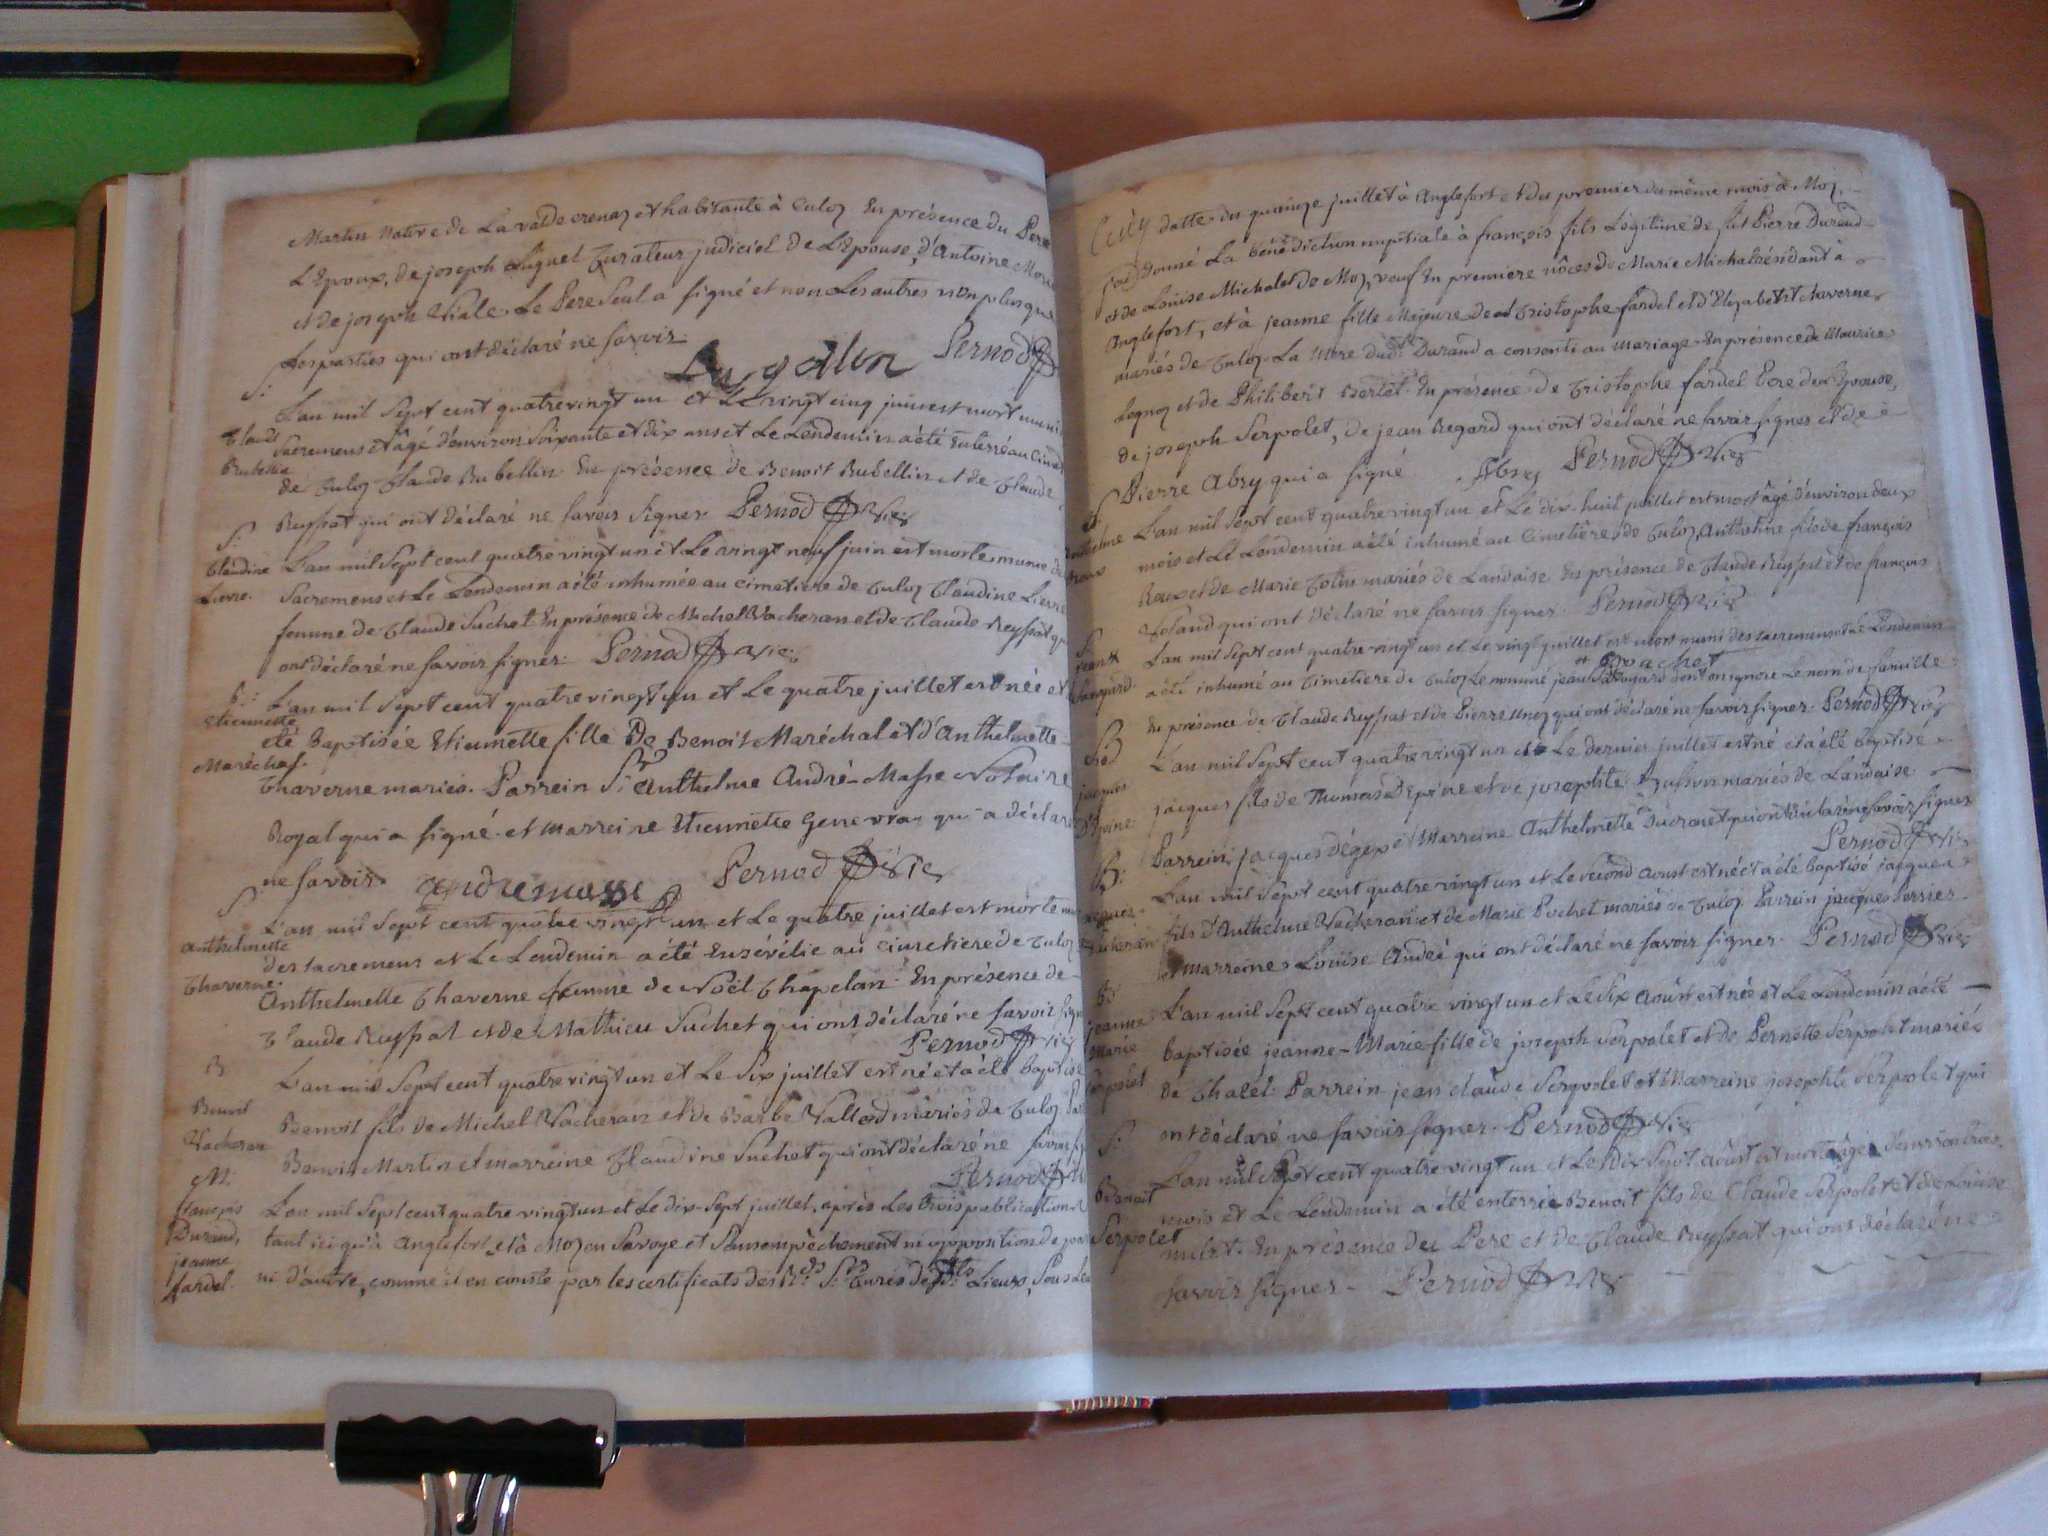 Martin Native de La val de crenaz et habitante à Culoz En présence du Pere
L'Epoux, de joseph Luguet Curateur judiciel de L'Epouse, d'Antoine
et de joseph Viale. Le Pere Seul a signé et non Les autres non plus que
Les parties qui ont déclaré ne savoir
Pernod
S:
L'an mil Sept cent quatre vingt un et Le vingt cinq juin est mort muni
Claude Sacremens et âgé d'environ Soixante et dix ans et Le Lendemin a été Enterré au
Rubellin de Culoz Claude Rubellin. En présence de Benoit Rubellin et de Claude
Reyssat qui ont déclaré ne savoir signer. Pernod Vic:
S:
Claudine L'an mil Sept cent quatre vingt un et Le vingt neuf juin est morte munie de
Lievre. Sacremens et Le Lendemin a été inhumée au cimetiere de Culoz Claudine Lievre
femme de Claude Suchet En présence de Michel Vacheran et de Claude Reyssat qui
ont déclaré ne savoir signer. Pernod Vic:
B:
L'an mil Sept cent quatre vingt un et Le quatre juillet est née et
Etiennette été Baptisée Etiennette fille De Benoit Maréchal et d'Anthelmette
Maréchal. Chaverne mariés. Parrein Sr Anthelme André-Masse Notaire
Royal qui a signé et Marreine Etiennette Genevray qui a déclaré
ne savoir. andremasse Pernod Vic
S
L'an mil Sept cent quatre vingt un et Le quatre juillet est morte
Anthelmette des sacremens et Le Lendemin a été Ensévélie au cimetiere de Culoz
Chaverne. Anthelmette Chaverne femme de Noël Chapelan. En présence de
Claude Reyssat et de Mathieu Suchet qui ont déclaré ne savoir
Pernod Vic
B
L'an mil Sept cent quatre vingt un et Le Six juillet est né et a été Baptisé
Benoit Benoit fils de Michel Vacheran et de Barbe Vallod mariés de Culoz
Vacheran Benoit Martin et marreine Claudine Suchet qui ont déclaré ne savoir
Pernod
M:
françois L'an mil Sept cent quatre vingt un et Le dix-Sept juillet, après Les trois publications
Durand, tant ici qu'à Anglefort et à Moz en Savoye et Sans empêchement ni opposition de
jeanne ni d'autre, comme il en conste par les certificats des Rds Srs Curés des dts Lieux, Sous
fardel.
datte du quinze juillet à Anglefort et du premier du même mois à Moz,
j'ai Donné La béné diction nuptiale à françois fils Légitime de fut Pierre Durand
et de Louise Michalet de Moz, veuf En premiere nôces de Marie Michala résidant à
Anglefort, et à jeanne fille Majeure de Cristophe fardel et d'Elizabeth Chaverne
mariés de Culoz. La Mere dud.t Durand a consenti au mariage En présence de Maurice
et de Philibert Berlet. En présence de Cristophe fardel Pere de L'Epouse,
de joseph Serpolet, de jean Regard qui ont déclaré ne savoir signer et de
Pierre Abry qui a signé. Abry Pernod Vic
S:
L'an mil Sept cent quatre vingt un et Le dix-huit juillet est mort âgé d'environ deux
mois et Le Lendemin a été inhumé au Cimetière de Culoz Anthelme fils de françois
Roux et de Marie Collin mariés de Landaise En présence de Claude Reyssat et de françois
qui ont déclaré ne savoir signer. Pernod Vic
S:
jean L'an mil Sept cent quatre vingt un et Le vingt juillet est mort muni des sacremens et Le Lendemin
a été inhumé au Cimetiere de Culoz Le nommé jean dont on ignore Le nom de famille
En présence de Claude Reyssat et de Pierre qui ont déclaré ne savoir signer. Pernod Vic
B
L'an mil Sept cent quatre vingt un et Le dernier juillet est né et a été Baptisé
jacques jacques fils de Thomas D'Epine et de josephte Husson mariés de Landaise
D'Epine. Parrein jacques et Marreine Anthelmette Ducrouet qui ont déclaré ne savoir signer
Pernod Vic
B:
L'an mil Sept cent quatre vingt un et Le second aoust est né et a été Baptisé jacques
Vacheran fils d'Anthelme Vacheran et de Marie Pochet mariés de Culoz. Parrein jacques Perrier
et marreine Louise André qui ont déclaré ne savoir signer. Pernod Vic
B
jeanne L'an mil Sept cent quatre vingt un et Le Six Août est née et Le Lendemin a été
Marie Baptisée jeanne-Marie fille de joseph Serpolet et de Pernette Serpolet mariés
Serpolet de Chatel. Parrein jean claude Serpolet et Marreine josephte Serpolet qui
S: ont déclaré ne savoir signer. Pernod Vic
L'an mil Sept cent quatre vingt un et Le dix Sept août est mort âgé d'environ trois
Benoit mois et Le Lendemin a été enterrée Benoit fils de Claude Serpolet et de Louise
Serpolet En présence du Pere et de Claude Reyssat qui ont déclaré ne
savoir signer. Pernod Vic